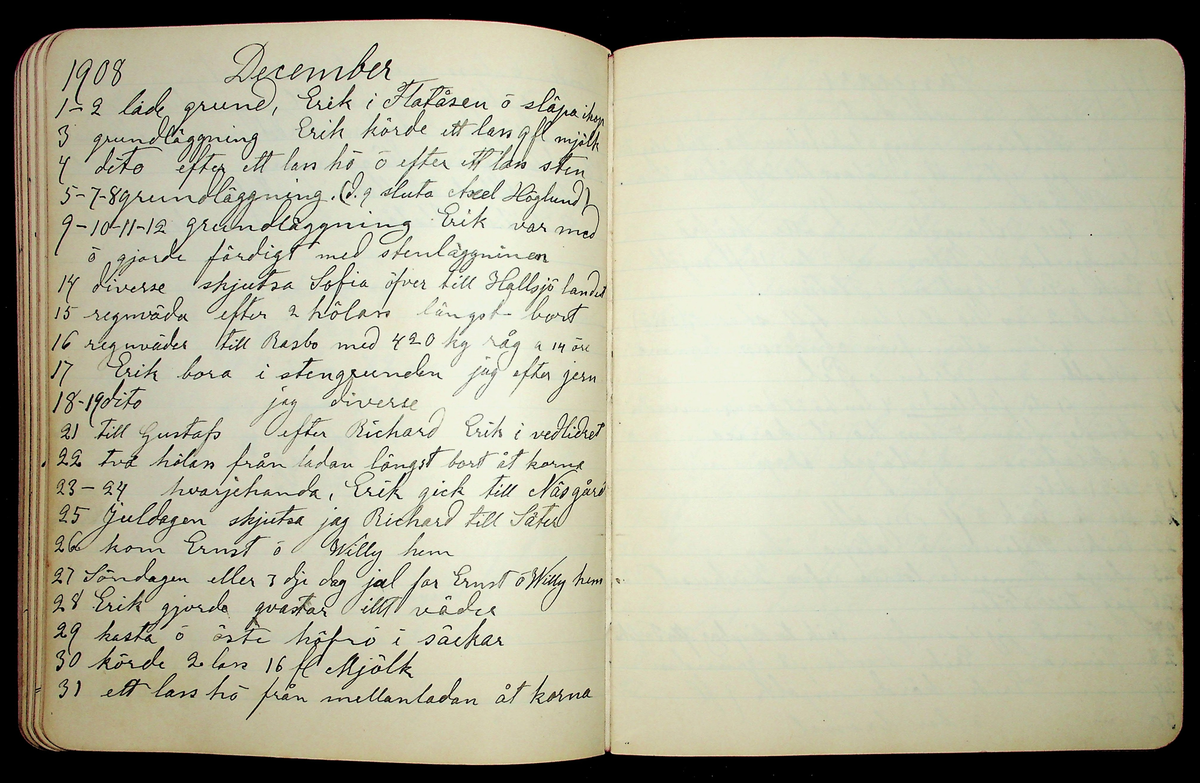 1908 December
1-2 lade grund, Erik i Flatåsen ö släpa ihop
3 grundläggning Erik körde ett lass 9 fl mjölk
4 dito efter ett lass hö ö efter ett lass sten
5-7-8 grundläggning. (d. 9 sluta Axel Höglund)
9-10-11-12 grundläggning Erik var med
ö gjorde färdigt med stenläggninen
14 diverse skjutsa Sofia öfver till Hallsjö landet
15 regnväda efter 2 hölass längst bort
16 regnväder till Rasbo med 420 kg råg a 14 öre
17 Erik bora i stengrunden jag efter jern
18-19 dito jag diverse
21 till Gustafs efter Richard Erik i vedlidret
22 två hölass från ladan längst bort åt korna
23-24 hvarjehanda, Erik gick till Näsgård
25 Juldagen skjutsa jag Richard till Säter
26 kom Ernst ö Willy hem
27 Söndagen eller 3 dje dag jul for Ernst ö Willy hem
28 Erik gjorde qvastar illt väder
29 kasta ö öste höfrö i säckar
30 körde 2 lass 16 fl Mjölk
31 ett lass hö från mellanladan åt korna